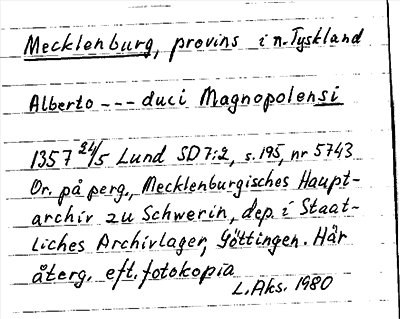 Mecklenburg, provins i n. Tyskland
Alberto --- duci Magnopolensi
1357 24/5 Lund SD 7:2, s. 195, nr 5743
Or. på perg., Mecklenburgisches Haupt-
archiv zu Schwerin, dep. i Staat-
liches Archivlager, Göttingen. Här
återg. eft. fotokopia
L. Aks. 1980